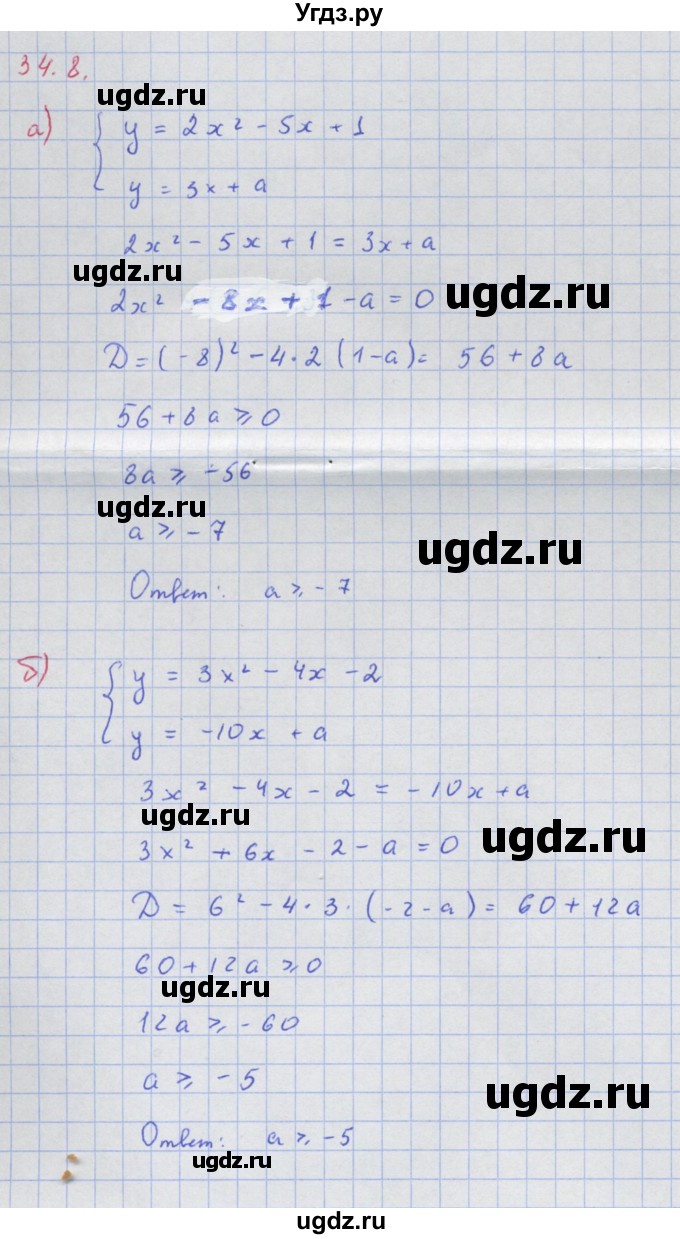 Угдз.ру
34.8.
ugdz.ru
а) { y = 2x² - 5x + 1
y = 3x + a
2x² - 5x + 1 = 3x + a
ugdz.ru
2x² - 8x + 1 - a = 0
ugdz.ru
D = (-8)² - 4·2 (1-a) = 56 + 8a
56 + 8a ⩾ 0
8a ⩾ -56
ugdz.ru
a ⩾ -7
ugdz.ru
Ответ: a ⩾ -7
б) { y = 3x² - 4x - 2
y = -10x + a
3x² - 4x - 2 = -10x + a
ugdz.ru
ugdz.ru
3x² + 6x - 2 - a = 0
D = 6² - 4·3·(-2-a) = 60 + 12a
60 + 12a ⩾ 0
ugdz.ru
12a ⩾ -60
a ⩾ -5
ugdz.ru
Ответ: a ⩾ -5
ugdz.ru
ugdz.ru